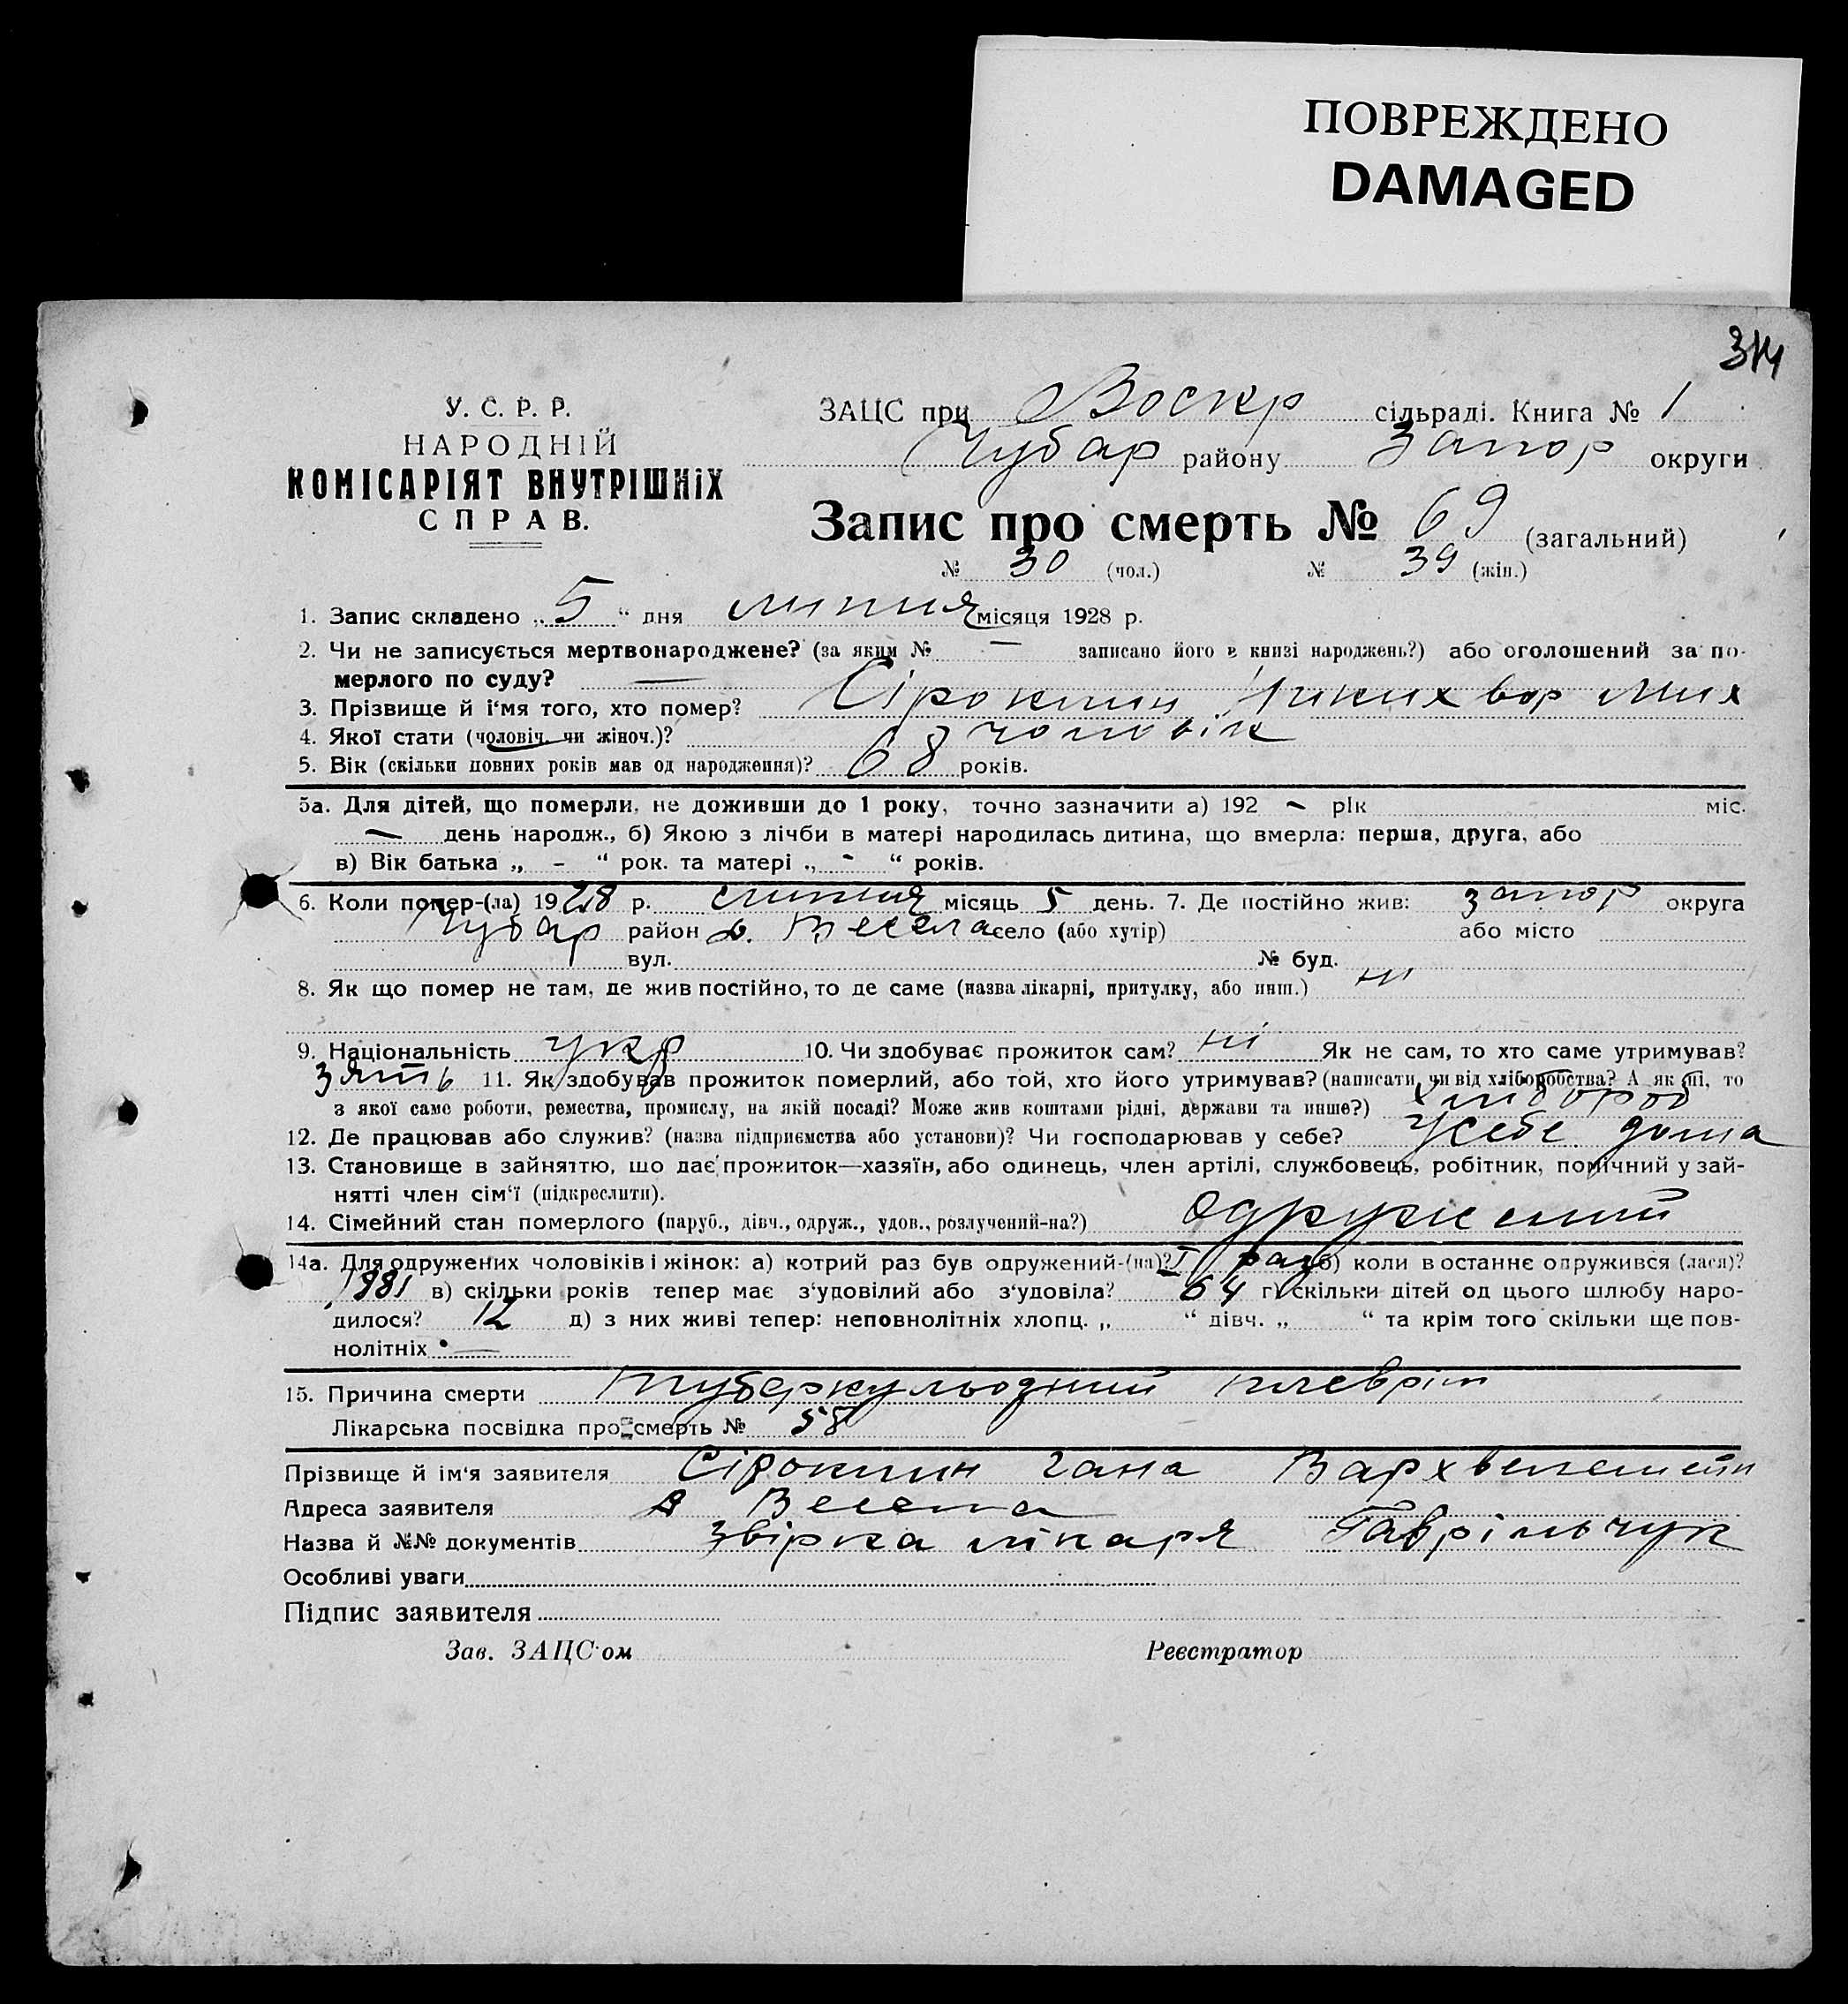 ПОВРЕЖДЕНО
DAMAGED
314
У. С. Р. Р.
НАРОДНІЙ
КОМІСАРІЯТ ВНУТРІШНІХ
СПРАВ.
ЗАЦС при Воскр сільраді. Книга № 1
Чубар району Запор округи
Запис про смерть № 69 (загальний)
№ 30 (чол.) № 39 (жін.)
1. Запис складено „ 5 “ дня липня місяця 1928 р.
2. Чи не записується мертвонароджене? (за яким № — записано його в книзі народжень?) або оголошений за по-
мерлого по суду? —
3. Прізвище й і'мя того, хто помер? Сірокмин Никихвор Мих
4. Якої стати (чоловіч. чи жіноч.)? чоловік
5. Вік (скільки повних років мав од народження)? 68 років.
5а. Для дітей, що померли, не доживши до 1 року, точно зазначити а) 192 — рік міс.
— день народж., б) Якою з лічби в матері народилась дитина, що вмерла: перша, друга, або
в) Вік батька „ - “ рок. та матері „ - “ років.
6. Коли помер-(ла) 1928 р. липня місяць 5 день. 7. Де постійно жив: Запор округа
Чубар район Весела село (або хутір) або місто
вул. № буд.
8. Як що помер не там, де жив постійно, то де саме (назва лікарні, притулку, або инш.) ні
9. Національність укр 10. Чи здобуває прожиток сам? ні Як не сам, то хто саме утримував?
зять 11. Як здобував прожиток померлий, або той, хто його утримував? (написати, чи від хліборобства? А як ні, то
з якої саме роботи, ремества, промислу, на якій посаді? Може жив коштами рідні, держави та инше?) хлібороб
12. Де працював або служив? (назва підприємства або установи)? Чи господарював у себе? У себе дома
13. Становище в зайняттю, що дає прожиток—хазяїн, або одинець, член артілі, службовець, робітник, помічний у зай-
нятті член сім'ї (підкреслити).
14. Сімейний стан померлого (паруб., дівч., одруж., удов., розлучений-на?) одружений
14а. Для одружених чоловіків і жінок: а) котрий раз був одружений-(на)? I раз б) коли в останнє одружився (лася)?
1881 в) скільки років тепер має з'удовілий або з'удовіла? 64 г) скільки дітей од цього шлюбу наро-
дилося? 12 д) з них живі тепер: неповнолітніх хлопц. „ “ дівч. „ “ та крім того скільки ще пов-
нолітніх —
15. Причина смерти туберкульозний плевріт
Лікарська посвідка про смерть № 58
Прізвище й ім'я заявителя Сірокмин Гана
Адреса заявителя Весела
Назва й №№ документів звірка лікаря Гаврільчук
Особливі уваги
Підпис заявителя
Зав. ЗАЦС'ом Реєстратор